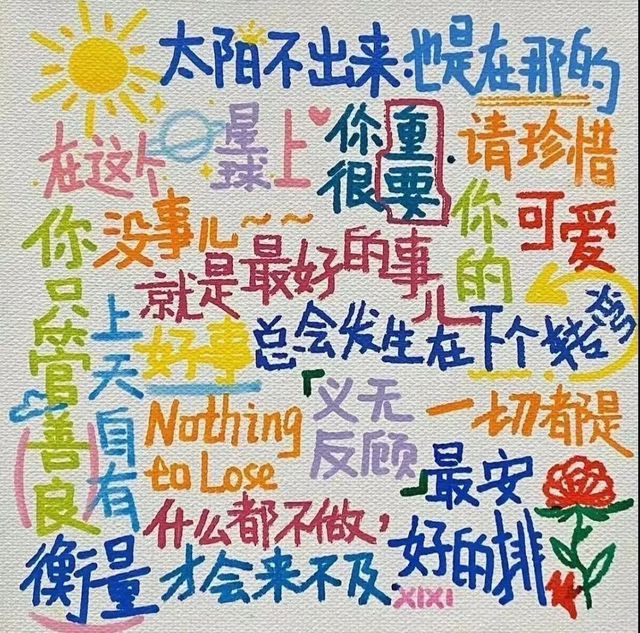 太阳不出来.也是在那的
在这个星球上
你很重要.
请珍惜你的可爱
没事儿~~
就是最好的事儿
你只管善良
上天自有衡量
好事总会发生在下个转弯
Nothing
to Lose
「义无反顾」
一切都是最安好的排
什么都不做,
才会来不及.
XIXI